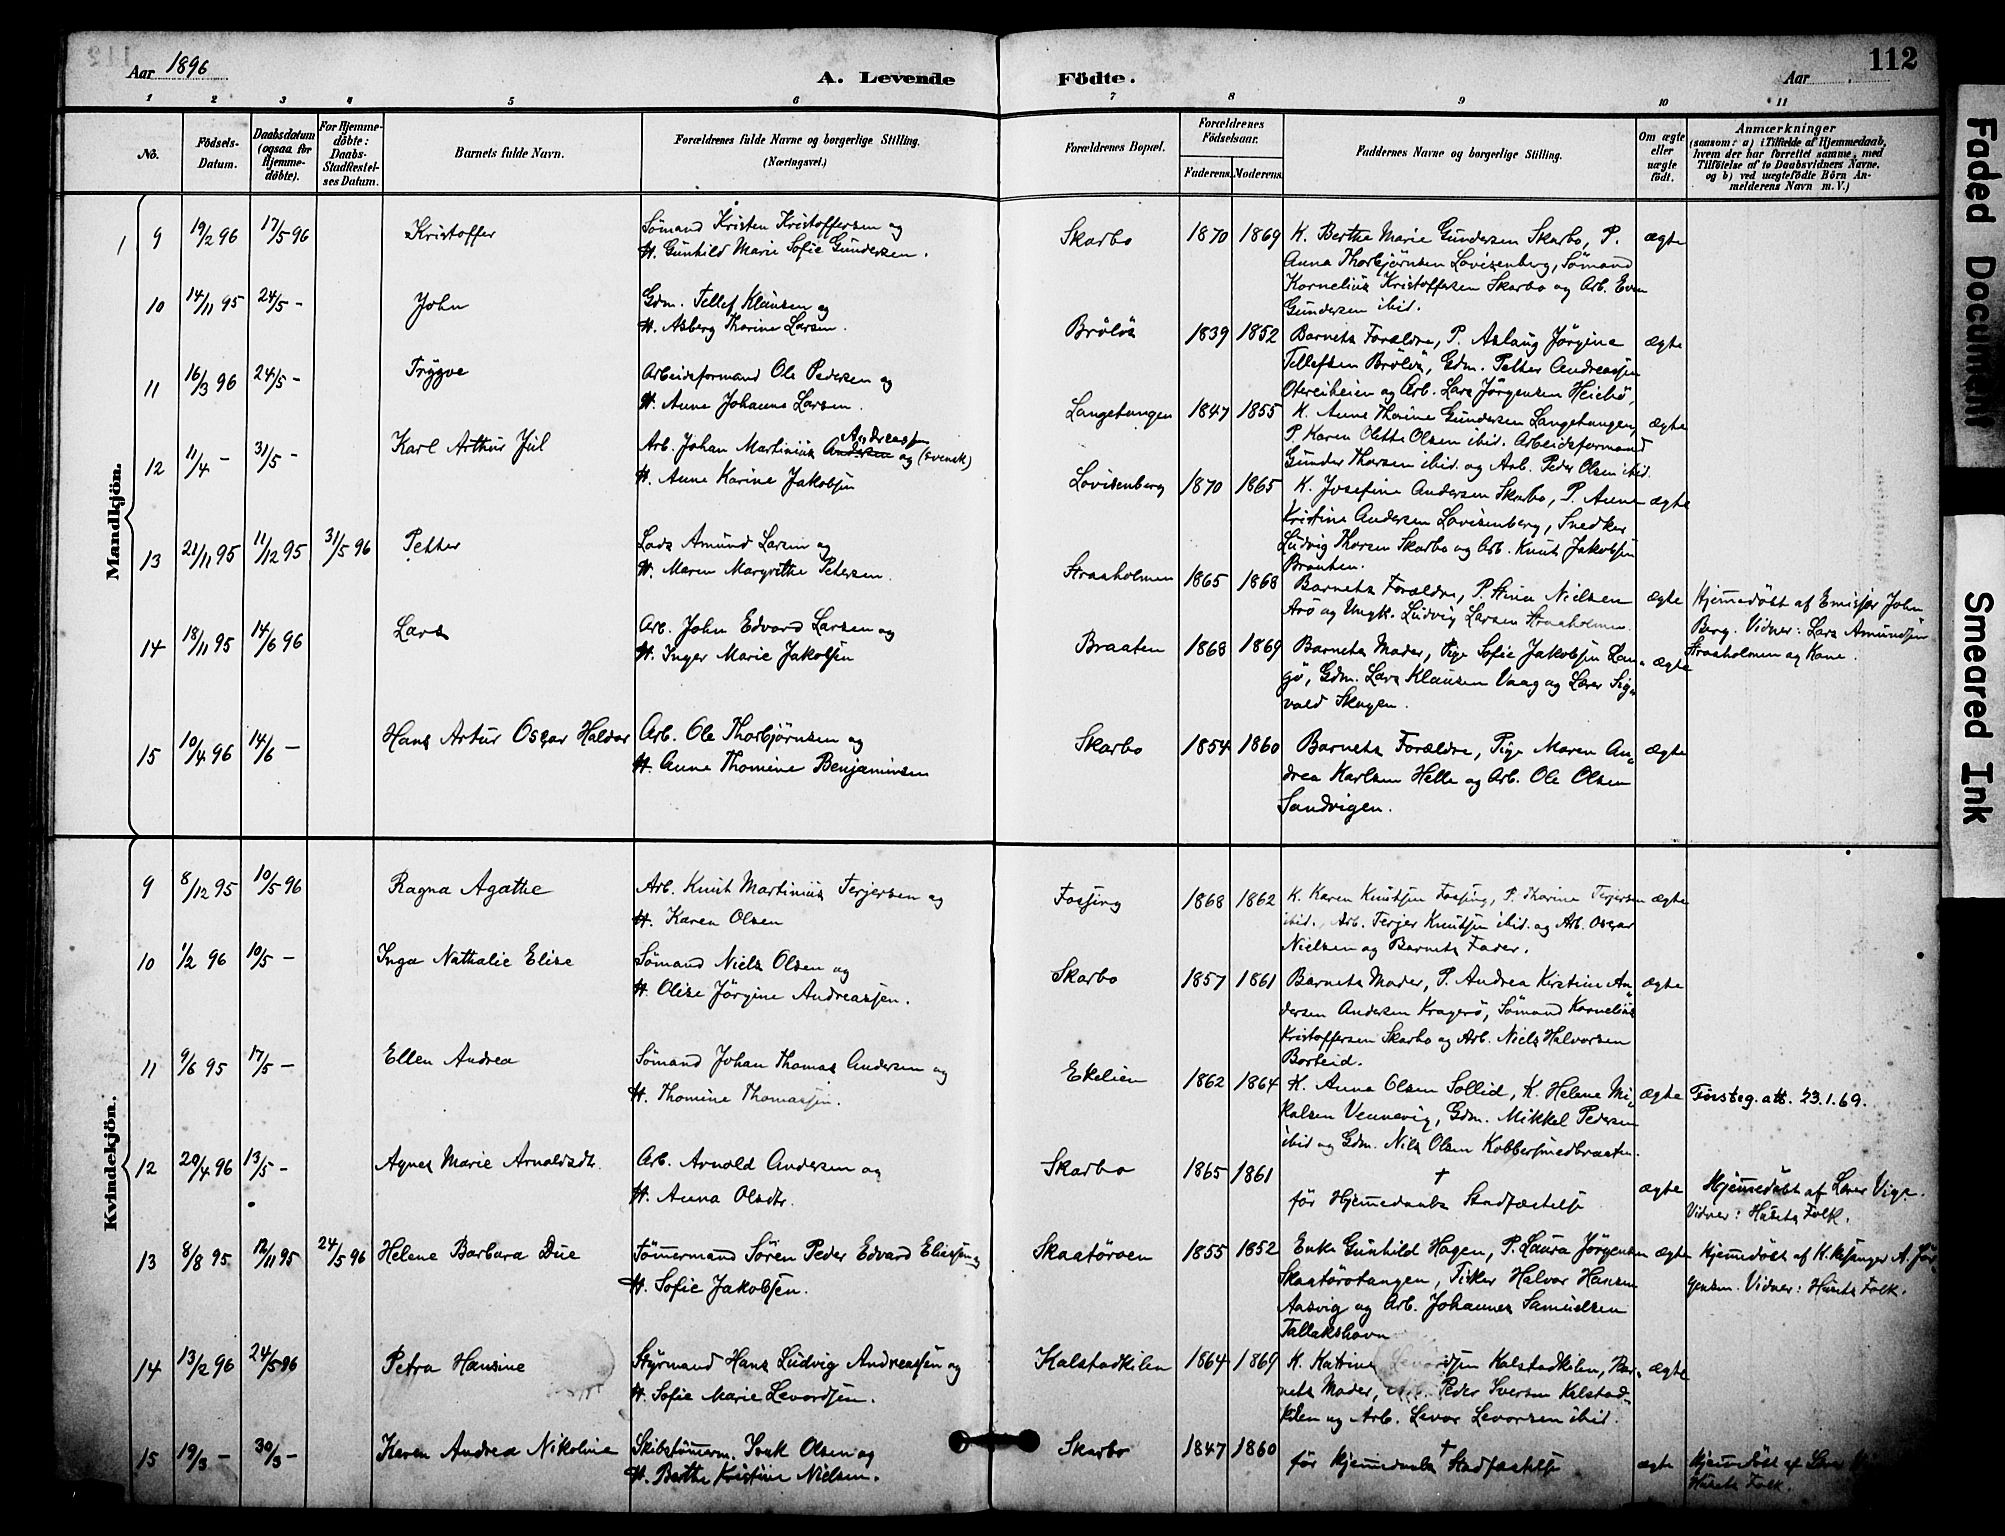 Aar 1896
A. Levende
Födte.
Aar
112
1 2 3 4 5 6 7 8 9 10 11
No.
Födsels-Datum.
Daabsdatum (ogsaa for Hjemme-döbte).
For Hjemme-döbte: Daabs-Stadfæstel-ses Datum.
Barnets fulde Navn.
Forældrenes fulde Navne og borgerlige Stilling.
(Næringsvei.)
Forældrenes Bopæl.
Forældrenes Födselsaar.
Faderens. Moderens.
Faddernes Navne og borgerlige Stilling.
Om ægte eller uægte födt.
Anmærkninger
(saasom: a) i Tilfælde af Hjemmedaab, hvem der har forrettet samme, med Tilföielse af to Daabsvidners Navne. og b) ved uægtefödte Börn An-melderens Navn m. V.)
Mandkjön.
9 19/2 96 17/5 96 Kristoffer
Sömand Kristen Kristoffersen og
H. Gunhild Marie Sofie Gundersen.
Skarbo 1870 1869
K. Berthe Marie Gundersen Skarbo, P.
Anna Thorbjørnsen Lovisenberg, Sømand
Kornelius Kristoffersen Skarbo og Arb. Even
Gundersen ibid.
ægte
10 14/11 95 24/5 – John
Gdm. Tellef Klausen og
H. Asberg Thorine Larsen.
Bröløs 1839 1852
Barnets Forældre, P. Aslaug Jørgine
Tellefsen Bröløs, Gdm. Petter Andreassen
og Arb. Lars Jørgensen Heibö,
ægte
11 16/3 96 24/5 – Tryggve
Arbeidsformand Ole Pedersen og
H. Anne Johanne Larsen.
Langetangen 1847 1855
K. Anne Thorine Gundersen Langetangen,
P. Karen Olette Olsen ibid. Arbeidsformand
Gunder Thorsen ibid. og Arb. Peder Olsen ibid.
ægte
12 11/4 – 31/5 – Karl Arthur Jul
Andreassen
Arb. Johan Martinius Andersen og (svensk)
H. Anne Karine Jakobsen
Lovisenberg 1870 1865
K. Josefine Andersen Skarbo, P. Anne
Kristine Andersen Lovisenberg, Snedker
Ludvig Thorsen Skarbo og Arb. Knut Jakobsen
Braaten.
ægte
13 21/11 95 11/12 95 31/5 96 Petter
Lods Amund Larsen og
H. Maren Margrethe Petersen.
Straaholmen 1865 1868
Barnets Forældre, P. Stina Nielsen
Arö og Ungk. Ludvig Larsen Straaholmen.
ægte
Hjemmedöbt af Emissær John
Berg. Vidner: Lars Amundsen
Straaholmen og Kone.
14 18/11 95 14/6 96 Lars
Arb. John Edvard Larsen og
H. Inger Marie Jakobsen
Braaten 1868 1869
Barnets Moder, Pige Sofie Jakobsen Lan-
gö, Gdm. Lars Klausen Vaag og Lærer Sig-
vald Skogen.
ægte
15 10/4 96 14/6 – Hans Artur Oscar Haldor
Arb. Ole Thorbjørnsen og
H. Anne Thomine Benjaminsen
Skarbo 1854 1860
Barnets Forældre, Pige Maren An-
drea Karlsen Helle og Arb. Ole Olsen
Sandvigen.
ægte
Kvindekjön.
9 8/12 95 10/5 96 Ragna Agathe
Arb. Knut Martinius Terjersen og
H. Karen Olsen
Fossing 1868 1862
K. Karen Knutsen Fossing, P. Thorine Terjersen
ibid., Arb. Terjer Knutsen ibid. og Arb. Oscar
Nielsen og Barnets Fader.
ægte
10 1/2 96 10/5 – Inga Nathalie Elise
Sømand Niels Olsen og
H. Olise Jörgine Andreassen.
Skarbo 1857 1861
Barnets Moder, P. Andrea Kirstine An-
dersen Andersen Kragerö, Sömand Kornelius
Kristoffersen Skarbo og Arb. Niels Halvorsen
Borteid.
ægte
11 9/6 95 17/5 – Ellen Andrea
Sømand Johan Thomas Andersen og
H. Thomine Thomassen.
Ekelien 1862 1864
K. Anne Olsen Sollid, K. Helene Mi-
kalsen Vennevig, Gdm. Mikkel Pedersen
ibid og Gdm. Nils Olsen Kobbersmedbraaten.
ægte
Førsteg. att. 23.1.69.
12 20/4 96 13/5 – Agnes Marie Arnoldsdtr.
Arb. Arnold Andersen og
H. Anna Olsdtr.
Skarbo 1865 1861
†
før Hjemmedaabs Stadfæstelse
ægte
Hjemmedöbt af Lærer Vige.
Vidner: Husets Folk.
13 8/8 95 12/11 95 24/5 96 Helene Barbara Due
Tömmermand Sören Peder Edvard Eliassen og
H. Sofie Jakobsen.
Skaatöroen 1855 1852
Enke Gunhild Hagen, P. Laura Jørgensen
Skaatörotangen, Fisker Halvor Hansen
Aasvig og Arb. Johannes Samuelsen
Tallakshavn
ægte
Hjemmedöbt af K.kesanger A. Jör-
gensen. Vidner: Husets Folk.
14 13/2 96 24/5 96 Petra Hansine
Styrmand Hans Ludvig Andreassen og
H. Sofie Marie Levordsen.
Kalstadkilen 1864 1869
K. Katrine Levordsen Kalstadkilen, Bar-
nets Moder, Arb. Peder Iversen Kalstad-
kilen og Arb. Levor Levorsen ibid.
ægte
15 19/3 – 30/3 – Karen Andrea Nikoline
Skibstömerm. Isak Olsen og
H. Berthe Kristine Nielsen.
Skarbo 1847 1860
†
før Hjemmedaabs Stadfæstelse
ægte
Hjemmedöbt af Lærer
Husets Folk.
Faded Document
Smeared Ink